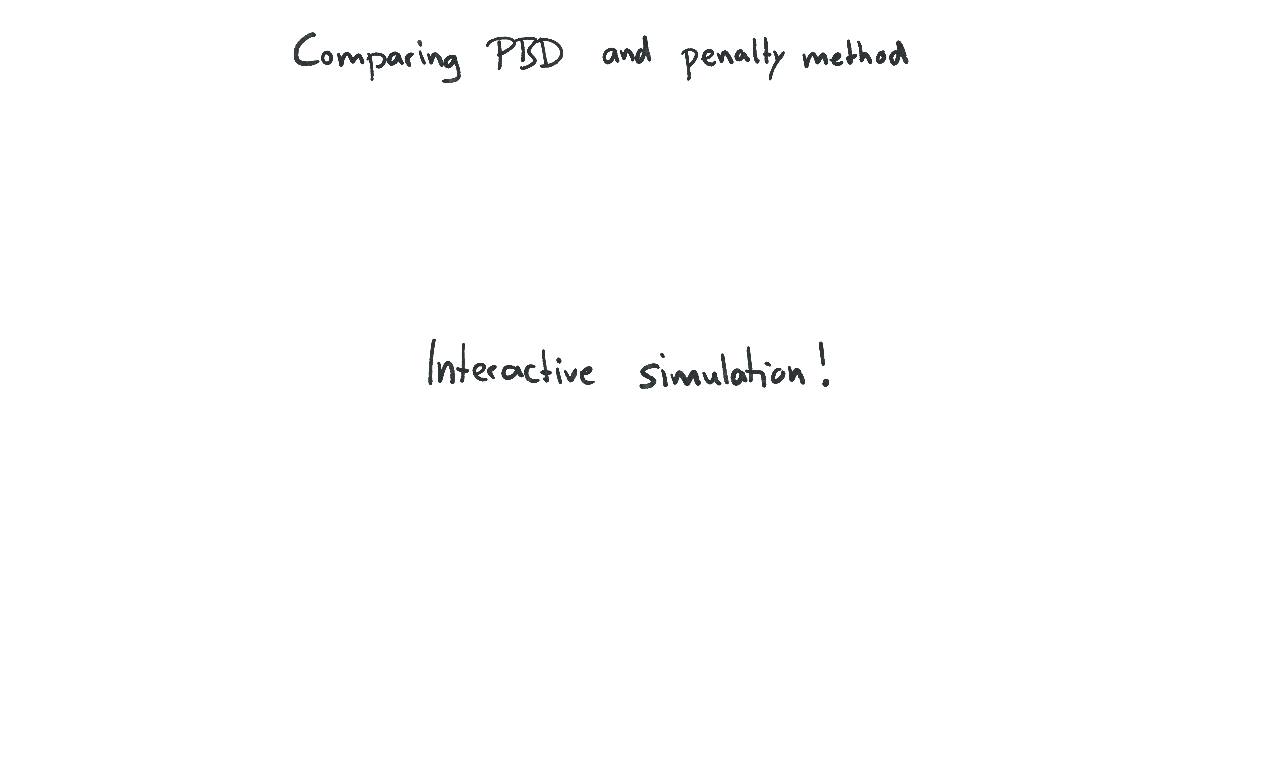 Comparing PBD and penalty method
Interactive simulation!